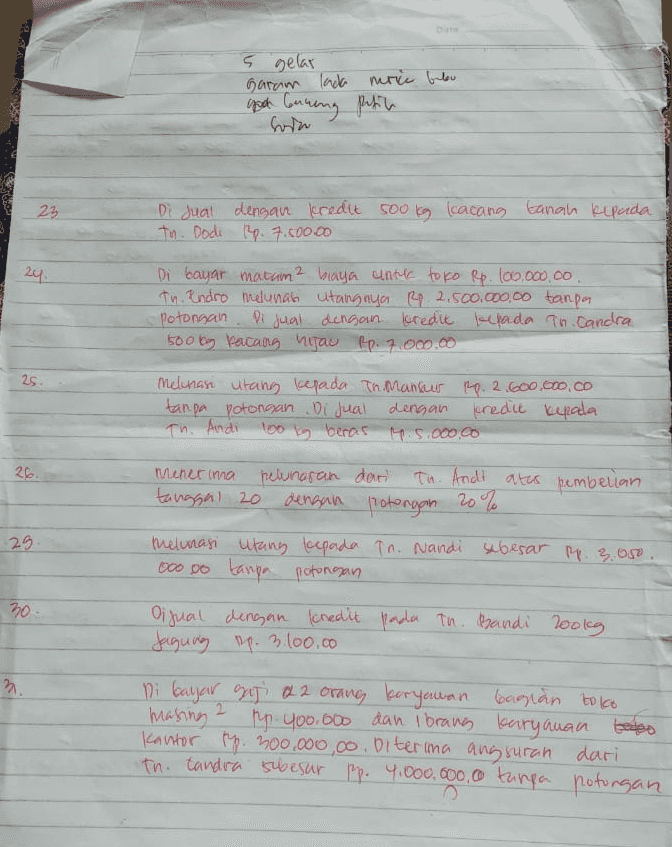 5 gelas
garam lada
putih
23 Di Jual dengan kredit 500 kg kacang tanah kepada
Tn. Dodi Rp. 7.500.00
24. Di bayar macam2 biaya untuk toko Rp. 100.000,00.
Tn. Endro melunasi utangnya Rp 2,500,000,00 tanpa
potongan. Di jual dengan kredit kepada Tn. Candra
500 kg kacang hijau Rp. 7.000.00
25. Melunasi utang kepada Tn. Mansur Rp. 2.600,000,00
tanpa potongan. Di jual dengan kredit kepada
Tn. Andi 100 kg beras Rp. 5.000,00
26. Menerima pelunasan dari Tn. Andi atas pembelian
tanggal 20 dengan potongan 20%
29. Melunasi utang kepada Tn. Nandi sebesar Rp. 3.050.
000 00 tanpa potongan
30. Dijual dengan kredit pada Tn. Bandi 200kg
Jagung Rp. 3.100,00
31. Di bayar gaji 2 orang karyawan bagian toko
masing2 Rp. 400.000 dan 1 orang karyawan
kantor Rp. 300,000,00. Diterima angsuran dari
Tn. Candra sebesar Rp. 4.000,000,00 tanpa potongan